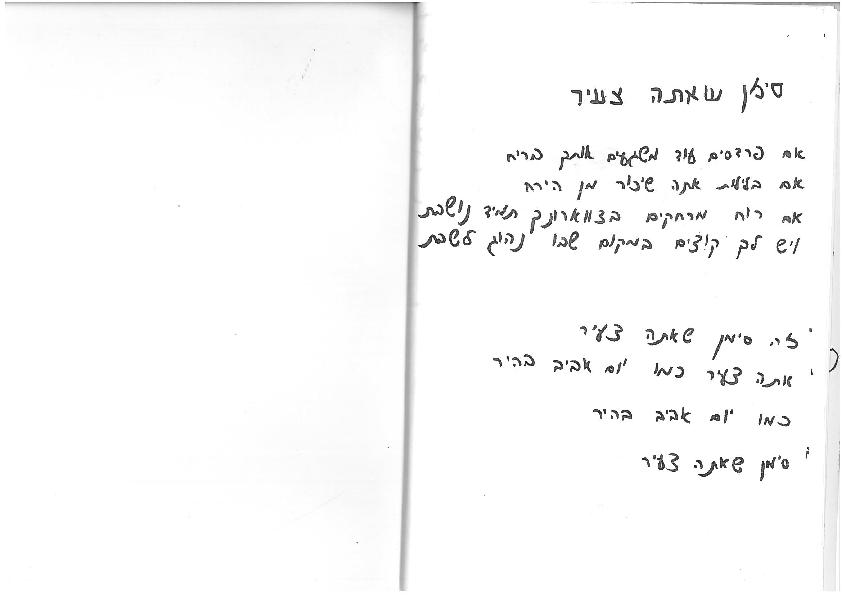 סימן שאתה צעיר
אם פרדסים עוד משגעים אותך בריח
אם בלילות אתה שיכור מן הירח
אם רוח מרחקים בצווארונך תמיד נושבת
ויש לך קוצים במקום שבו נהוג לשבת
זה סימן שאתה צעיר
אתה צעיר כמו יום אביב בהיר
כמו יום אביב בהיר
סימן שאתה צעיר